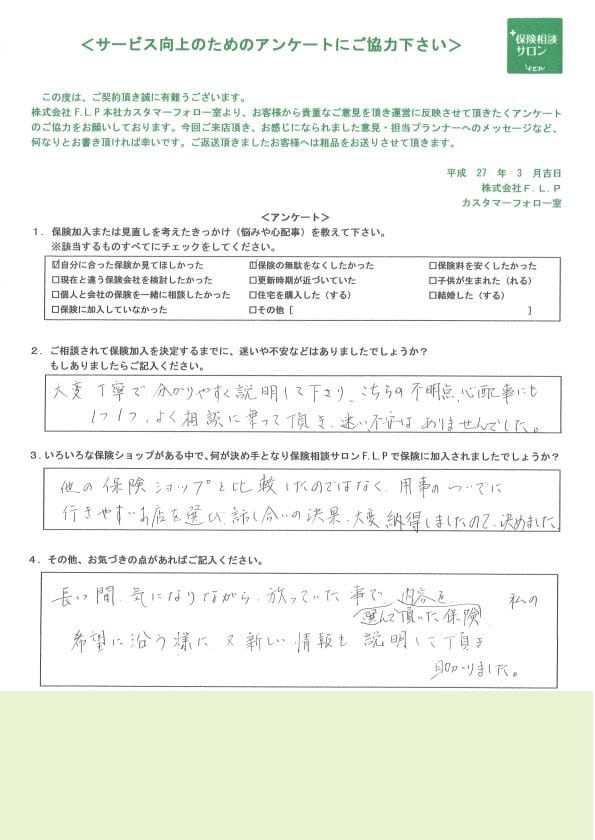 ＜サービス向上のためのアンケートにご協力下さい＞
保険相談
サロン
F.L.P
この度は、ご契約頂き誠に有難うございます。
株式会社F.L.P本社カスタマーフォロー室より、お客様から貴重なご意見を頂き運営に反映させて頂きたくアンケート
のご協力をお願いしております。今回ご来店頂き、お感じになられました意見・担当プランナーへのメッセージなど、
何なりとお書き頂ければ幸いです。ご返送頂きましたお客様へは粗品をお送りさせて頂きます。
平成 27 年 3 月吉日
株式会社F.L.P
カスタマーフォロー室
＜アンケート＞
1．保険加入または見直しを考えたきっかけ（悩みや心配事）を教えて下さい。
※該当するものすべてにチェックをしてください。
☑自分に合った保険か見てほしかった ☑保険の無駄をなくしたかった □保険料を安くしたかった
□現在と違う保険会社を検討したかった □更新時期が近づいていた □子供が生まれた（れる）
□個人と会社の保険を一緒に相談したかった □住宅を購入した（する） □結婚した（する）
□保険に加入していなかった □その他［ ］
2．ご相談されて保険加入を決定するまでに、迷いや不安などはありましたでしょうか？
もしありましたらご記入ください。
大変丁寧で分かりやすく説明して下さり、こちらの不明点、心配事にも
1つ1つ、よく相談に乗って頂き、迷い、不安はありませんでした。
3．いろいろな保険ショップがある中で、何が決め手となり保険相談サロンF.L.Pで保険に加入されましたでしょうか？
他の保険ショップと比較したのではなく、用事のついでに
行きやすいお店を選び、話し合いの決果、大変納得しましたので、決めました。
4．その他、お気づきの点があればご記入ください。
長い間、気になりながら、放っていた事で、内容を、私の
選んで頂いた保険
希望に沿う様に、又新しい情報も説明して頂き
助かりました。